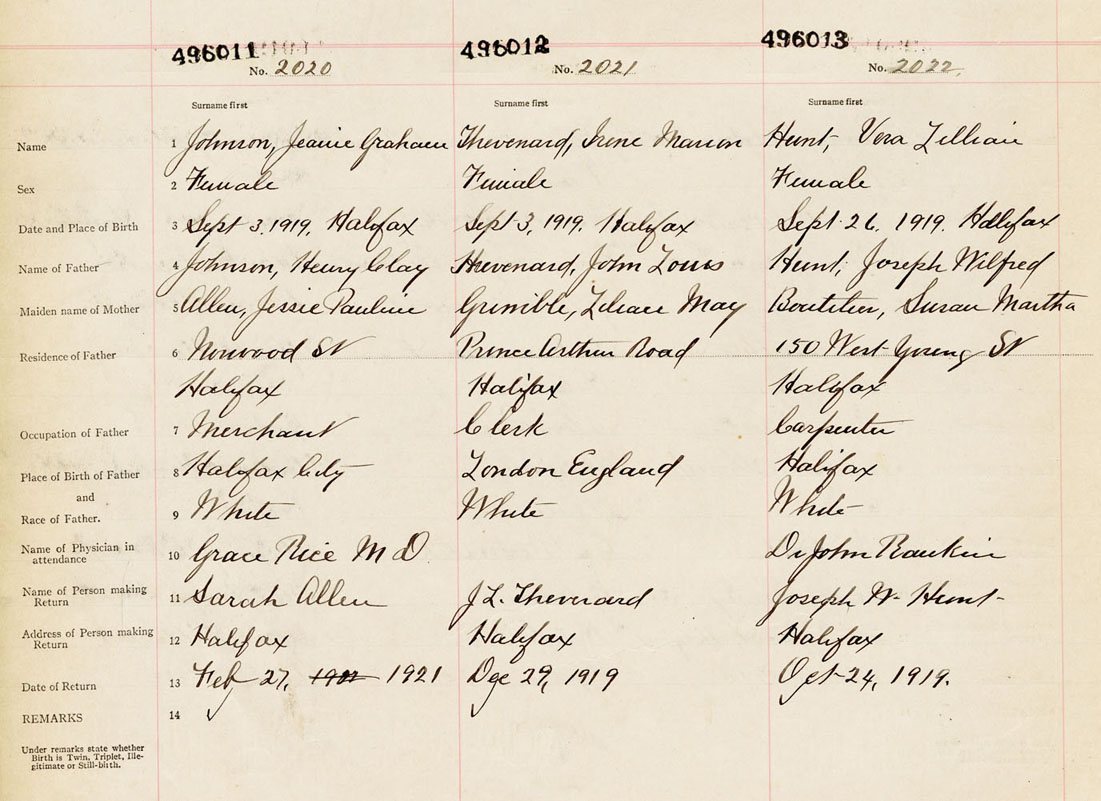 496011 496012 496013
No. 2020 No. 2021 No. 2022
Surname first Surname first Surname first
Name 1 Johnson, Jeanie Graham Thevenard, Irene Marion Hunt, Vera Lillian
Sex 2 Female Female Female
Date and Place of Birth 3 Sept 3, 1919, Halifax Sept 3, 1919, Halifax Sept 26, 1919, Halifax
Name of Father 4 Johnson, Henry Clay Thevenard, John Louis Hunt, Joseph Wilfred
Maiden name of Mother 5 Allen, Jessie Pauline Grimble, Lilian May Boutilier, Susan Martha
Residence of Father 6 Norwood St Prince Arthur Road 150 West Young St
Halifax Halifax Halifax
Occupation of Father 7 Merchant Clerk Carpenter
Place of Birth of Father 8 Halifax City London England Halifax
and
Race of Father. 9 White White White
Name of Physician in attendance 10 Grace Rice M D. Dr John Rankin
Name of Person making Return 11 Sarah Allen J L. Thevenard Joseph W. Hunt
Address of Person making Return 12 Halifax Halifax Halifax
Date of Return 13 Feb 27, 1921 Dec 29, 1919 Oct 24, 1919.
REMARKS 14
Under remarks state whether
Birth is Twin, Triplet, Ille-
gitimate or Still-birth.